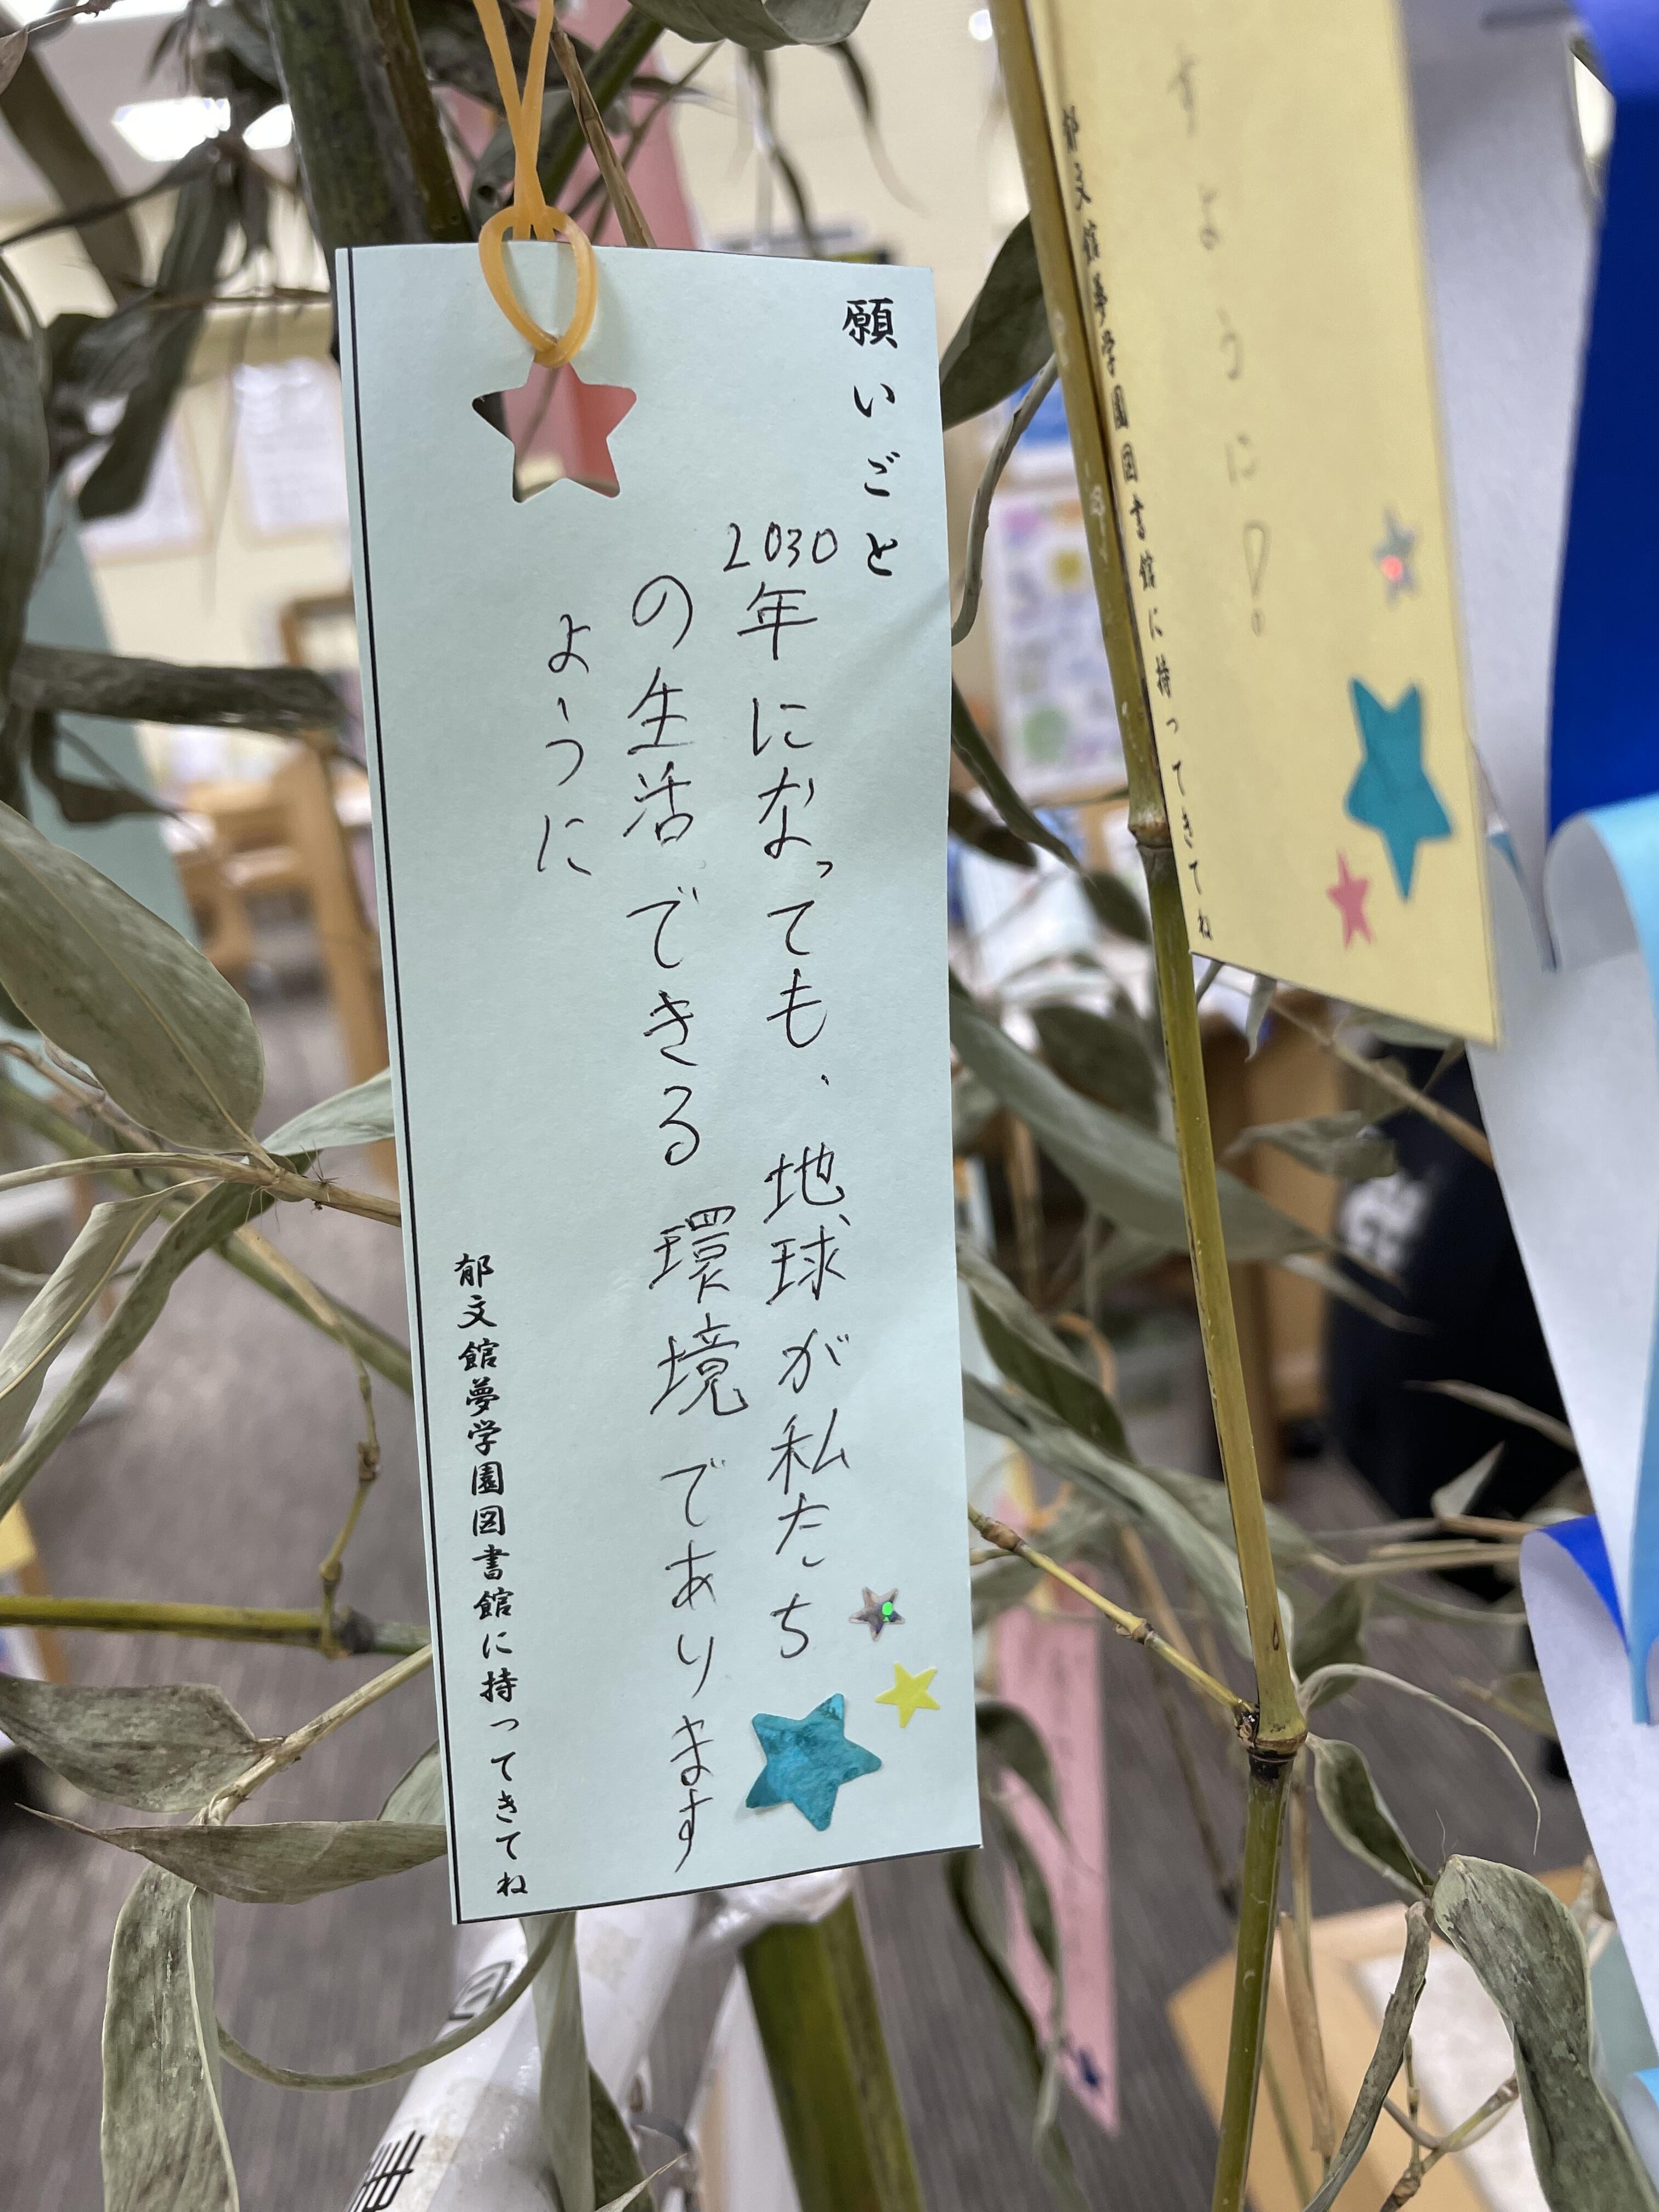 願いごと
2030年になっても、地球が私たち
の生活できる環境であります
ように
郁文館夢学園図書館に持ってきてね
すように!
郁文館夢学園図書館に持ってきてね